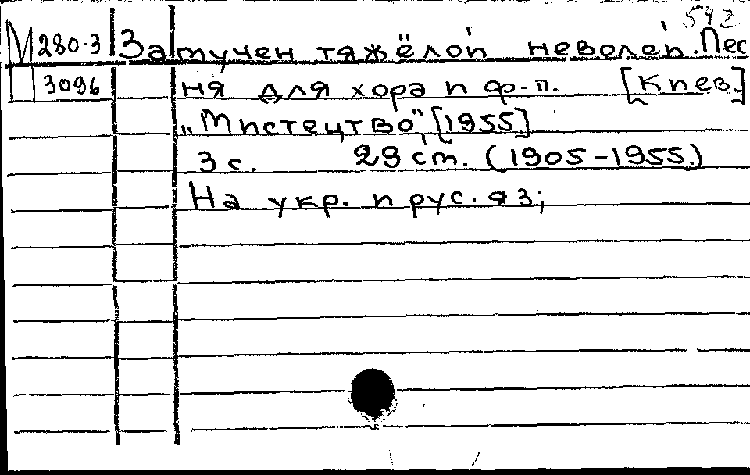 542
М 280-3 Замучен тяжёлой неволей. Пес
3096 ня для хора и ф-п. [Киев.]
„Мистецтво", [1955]
3 с. 29 см. (1905-1955.)
На укр. и рус. яз;